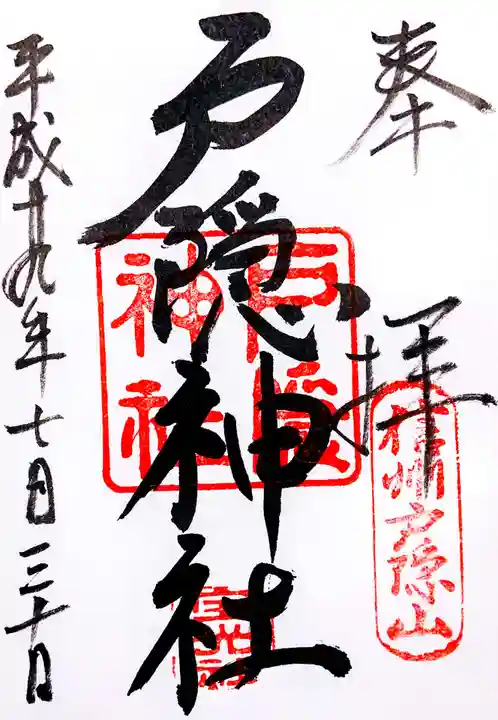 奉拝
信州戸隠山
戸隠神社
戸隠神社
平成十九年七月三十日